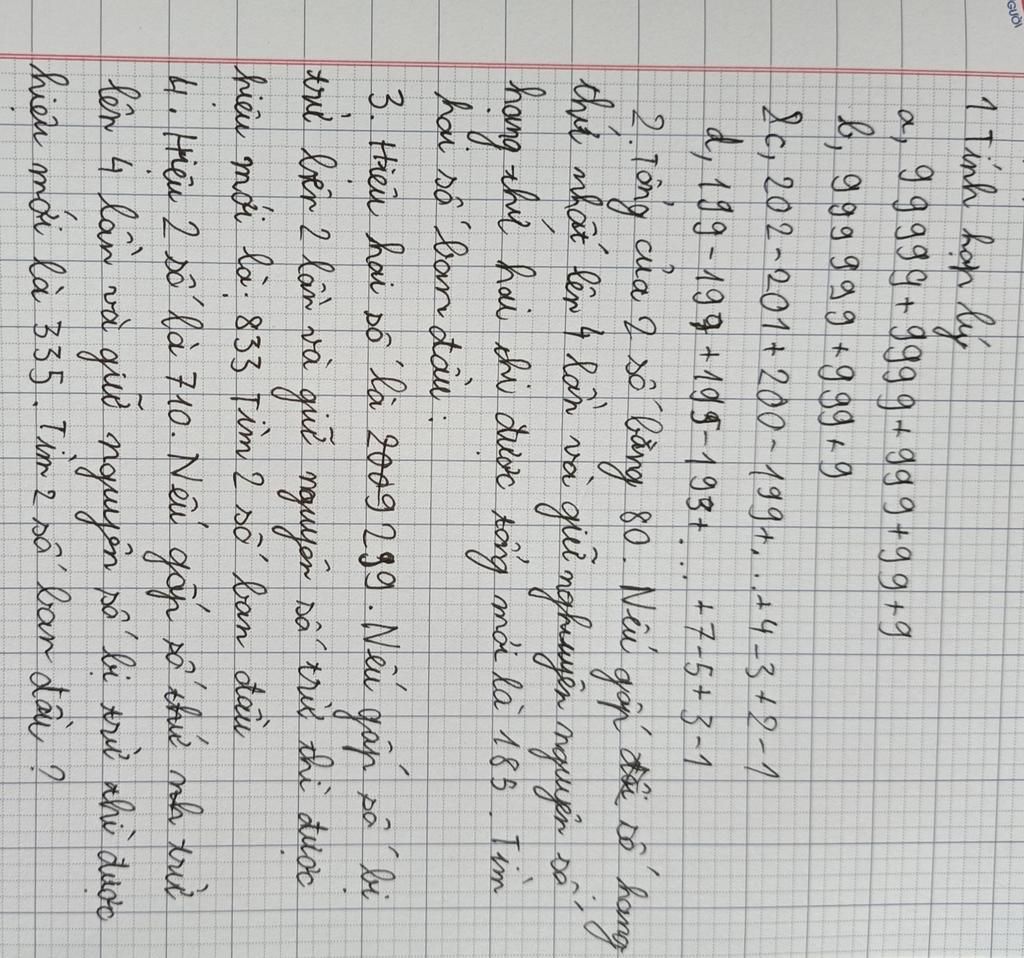 NGƯỜI
1 Tính hợp lý
a, 99999 + 9999 + 999 + 99 + 9
b, 999 999 + 999 + 9
c, 202 - 201 + 200 - 199 + ... + 4 - 3 + 2 - 1
d, 199 - 197 + 195 - 193 + ... + 7 - 5 + 3 - 1
2. Tổng của 2 số bằng 80. Nếu gấp số hạng
thứ nhất lên 4 lần và giữ nguyên số
hạng thứ hai thì được tổng mới là 185. Tìm
hai số ban đầu.
3. Hiệu hai số là 299. Nếu gấp số bị
trừ lên 2 lần và giữ nguyên số trừ thì được
hiệu mới là 833 Tìm 2 số ban đầu
4. Hiệu 2 số là 710. Nếu gấp số trừ
lên 4 lần và giữ nguyên số bị trừ thì được
hiệu mới là 335. Tìm 2 số ban đầu?